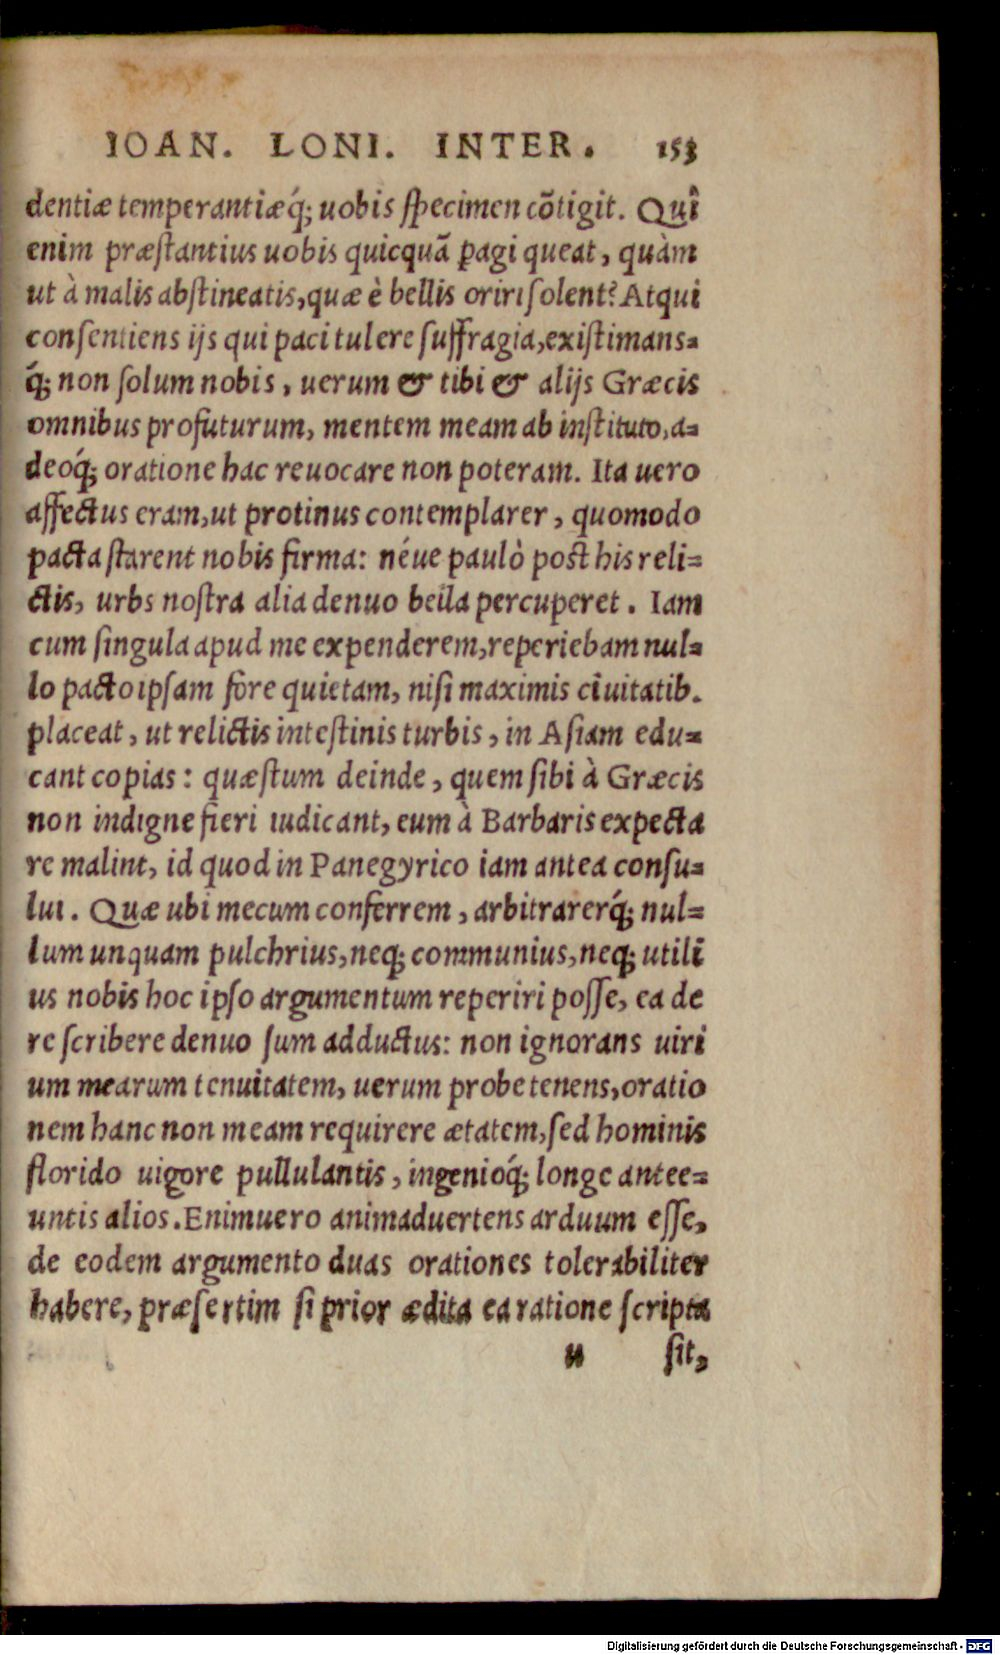 IOAN. LONI. INTER. 153
dentiæ temperantiæq́; uobis ſpecimen cõtigit. Quî
enim præſtantius uobis quicquã ꝑagi queat, quàm
ut à malis abſtineatis, quæ è bellis oriri ſolent? Atqui
conſentiens ijs qui paci tulere ſuffragia, exiſtimans-
q́; non ſolum nobis, uerum & tibi & alijs Græcis
omnibus profuturum, mentem meam ab inſtituto, a-
deoq́; oratione hac reuocare non poteram. Ita uero
affectus eram, ut protinus contemplarer, quomodo
pacta ſtarent nobis firma: néue paulò poſt his reli-
ctis, urbs noſtra alia denuo bella percuperet. Iam
cum ſingula apud me expenderem, reperiebam nul-
lo pacto ipſam fore quietam, niſi maximis ciuitatib.
placeat, ut relictis inteſtinis turbis, in Aſiam edu-
cant copias: quæſtum deinde, quem ſibi à Græcis
non indigne fieri iudicant, eum à Barbaris expecta
re malint, id quod in Panegyrico iam antea conſu-
lui. Quæ ubi mecum conferrem, arbitrarerq́; nul-
lum unquam pulchrius, neq; communius, neq; utili
us nobis hoc ipſo argumentum reperiri poſſe, ea de
re ſcribere denuo ſum adductus: non ignorans uiri
um mearum tenuitatem, uerum probe tenens, oratio
nem hanc non meam requirere ætatem, ſed hominis
florido uigore pullulantis, ingenioq́; longe antee-
untis alios. Enimuero animaduertens arduum eſſe,
de eodem argumento duas orationes tolerabiliter
habere, præſertim ſi prior ædita ea ratione ſcripta
u ſit,
Digitalisierung gefördert durch die Deutsche Forschungsgemeinschaft - DFG